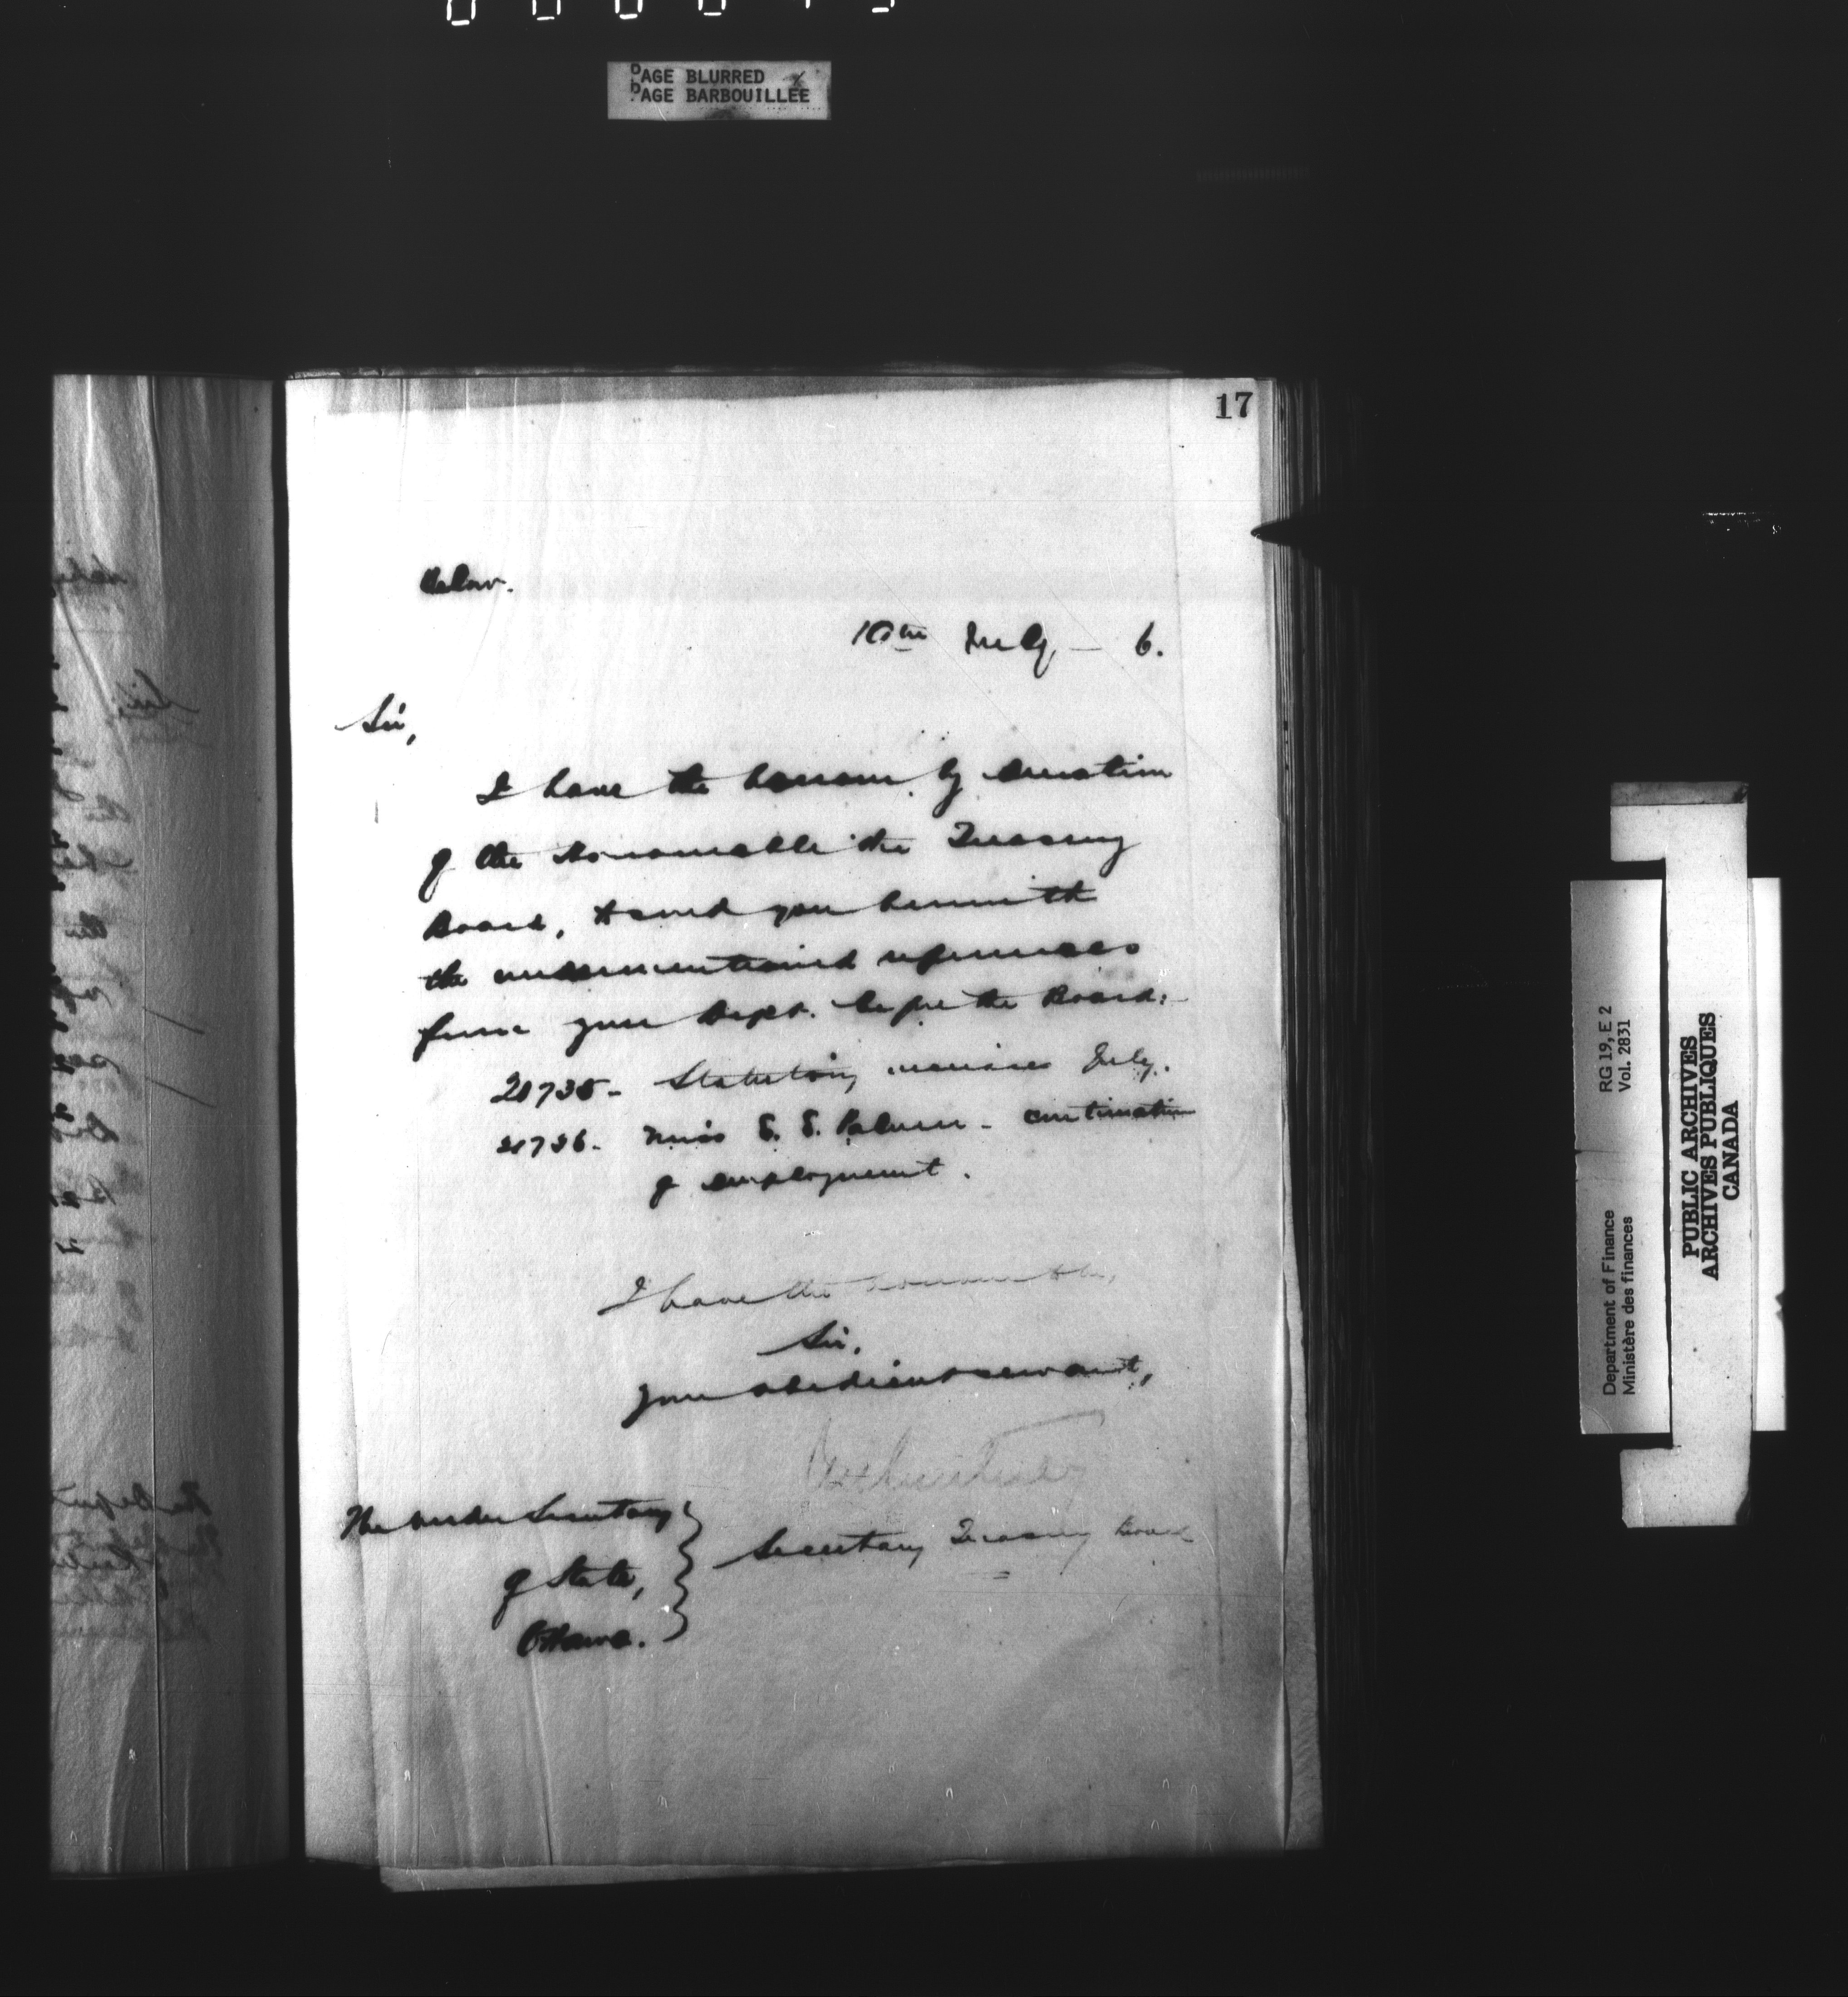 PAGE BLURRED
PAGE BARBOUILLÉE
17
Below.
10th July — 6.
Sir,
I have the honour, by direction
of the Honourable the Treasury
Board, to send you herewith
the undermentioned references
from your Dept. before the Board:-
Statutory increases July.
Miss E. E. Palmer - continuation
of employment.
I have the honour to be,
Sir,
Your obedient servant,
The Under Secretary
of State,
Ottawa.
Secretary Treasury Board
Department of Finance
Ministère des finances
RG 19, E 2
Vol. 2831
PUBLIC ARCHIVES
ARCHIVES PUBLIQUES
CANADA